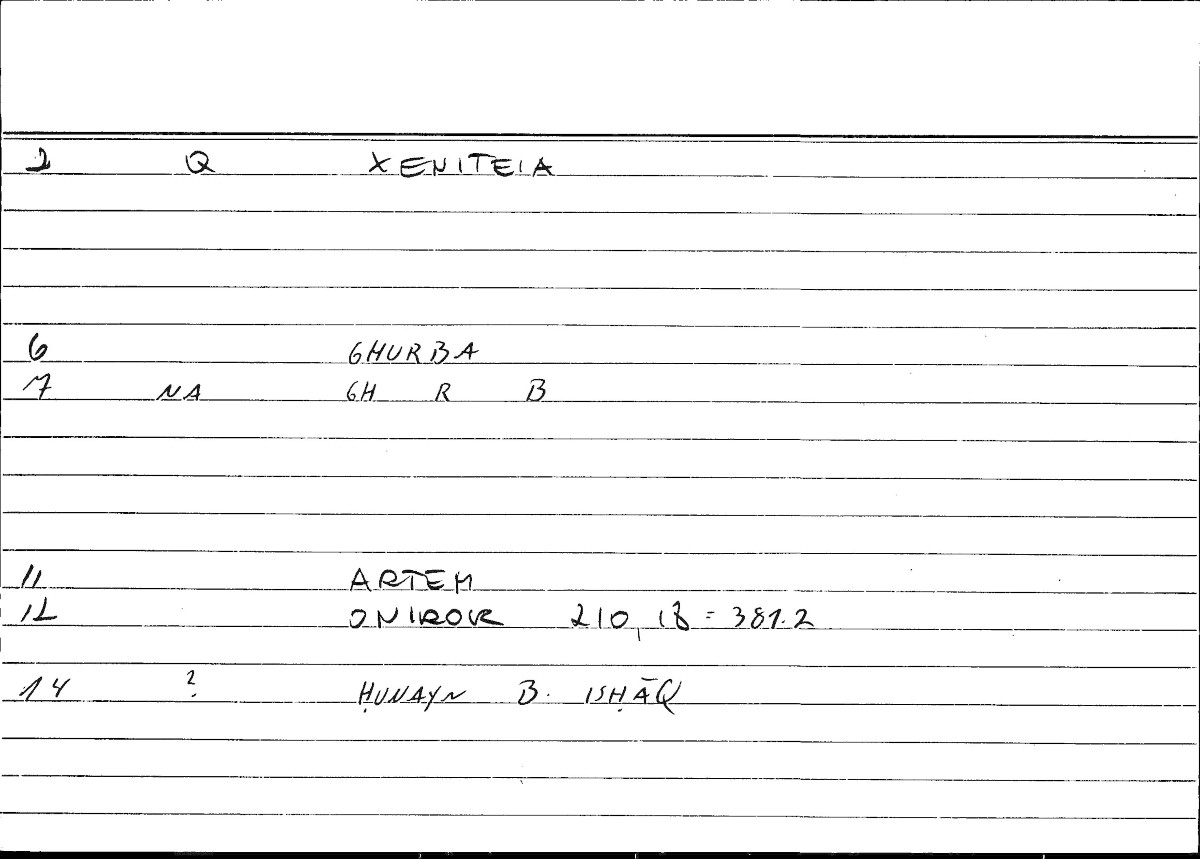 2 Q XENITEIA
6 GHURBA
7 NA GH R B
11 ARTEM
12 ONIROK 210,18 = 381.2
14 ? ḤUNAYN B. ISḤĀQ